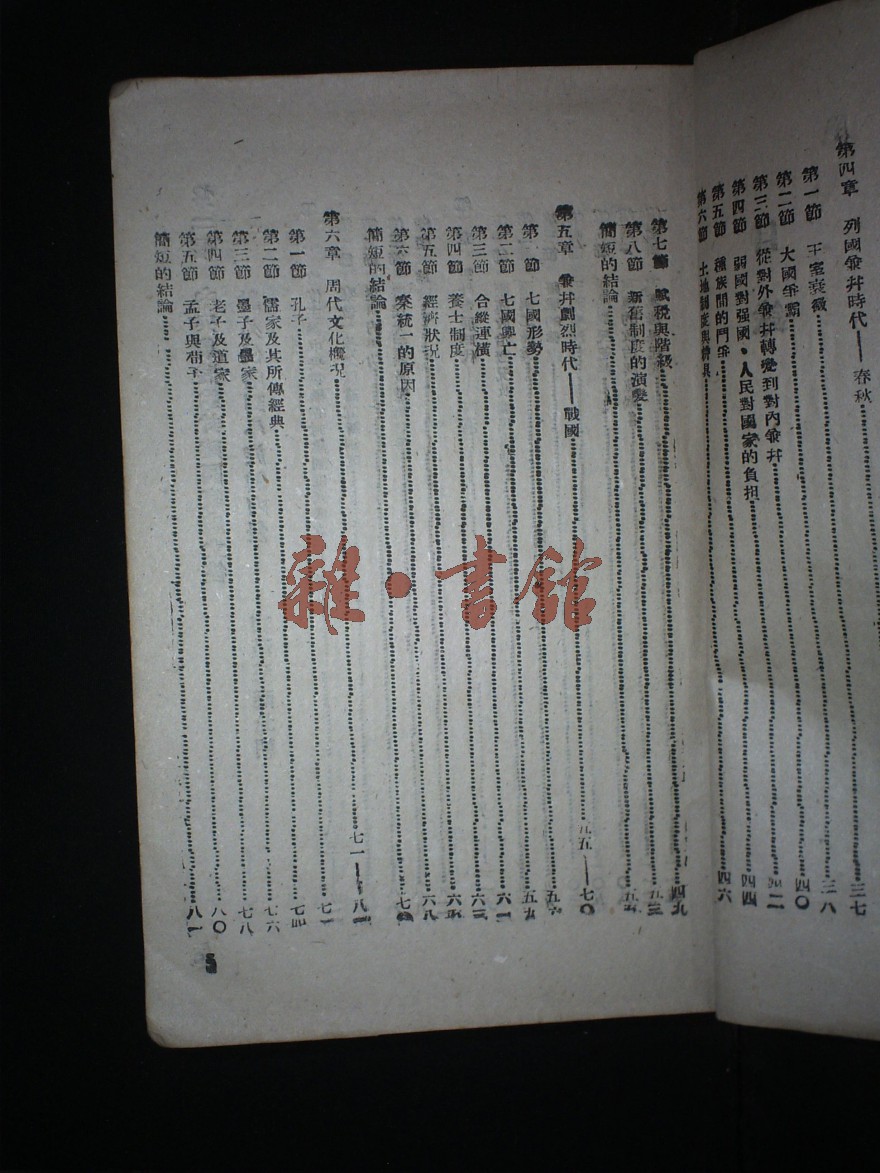 第四章 列國兼并時代——春秋……三七
第一節 王室衰微……三八
第二節 大國爭霸……四〇
第三節 從對外兼并轉變到對內兼并……四二
第四節 弱國對强國、人民對國家的負担……四四
第五節 種族間的鬥爭……四六
第六節 土地制度與
第七節 賦稅與階級……四九
第八節 新舊制度的演變……五三
簡短的結論……五五
第五章 兼并劇烈時代——戰國……五五——七〇
第一節 七國形勢……五五
第二節 七國興亡……五五
第三節 合縱連橫……六一
第四節 養士制度……六三
第五節 經濟狀況……六五
第六節 秦統一的原因……六八
簡短的結論……七〇
第六章 周代文化概況……七一——八一
第一節 孔子……七一
第二節 儒家及其所傳經典……七四
第三節 墨子及墨家……七六
第四節 老子及道家……七八
第五節 孟子與荀子……八〇
簡短的結論……八一
5
雜·書館